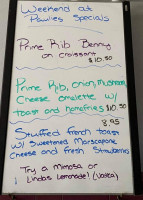 Weekend at
Pawlies Specials
Prime Rib Benny
on croissant
$10.50
Prime Rib, Onion, Mushroom,
Cheese omelette w/
toast and homefries $10.50
8.95
Stuffed french toast
w/ Sweetened Marscapone
Cheese and fresh Strawberries
Try a Mimosa or
Lindas Lemonade! (Vodka)